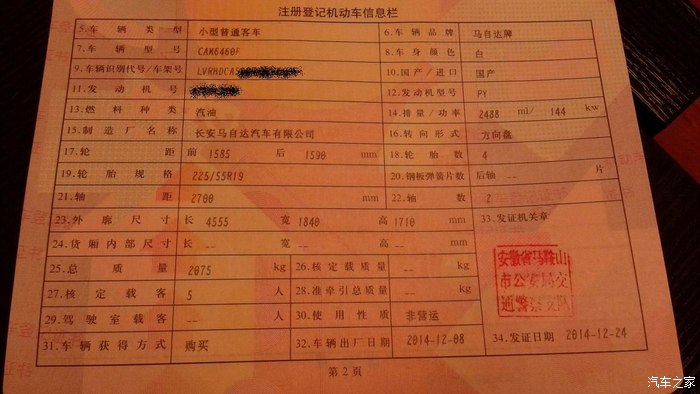 注册登记机动车信息栏
5.车辆类型 小型普通客车 6.车辆品牌 马自达牌
7.车辆型号 CAM6460F 8.车身颜色 白
9.车辆识别代号/车架号 LVRHDCA 10.国产/进口 国产
11.发动机号 12.发动机型号 PY
13.燃料种类 汽油 14.排量/功率 2488 ml/ 144 kw
15.制造厂名称 长安马自达汽车有限公司 16.转向形式 方向盘
17.轮距 前 1585 后 1590 mm 18.轮胎数 4
19.轮胎规格 225/55R19 20.钢板弹簧片数 后轴 -- 片
21.轴距 2700 mm 22.轴数 2
23.外廓尺寸 长 4555 宽 1840 高 1710 mm 33.发证机关章
24.货厢内部尺寸 长 -- 宽 -- 高 -- mm
25.总质量 2075 kg 26.核定载质量 -- kg
27.核定载客 5 人 28.准牵引总质量 -- kg
29.驾驶室载客 -- 人 30.使用性质 非营运
安徽省马鞍山
市公安局交
通警察支队
31.车辆获得方式 购买 32.车辆出厂日期 2014-12-08 34.发证日期 2014-12-24
第2页
汽车之家